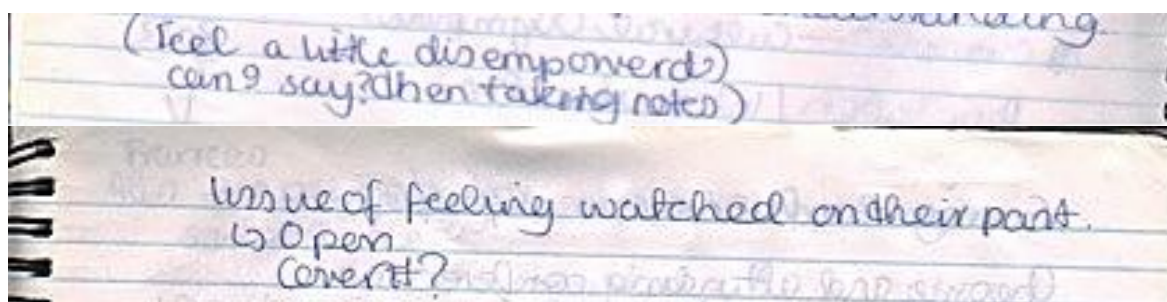 (feel a little disempowerd)
can? say? When taking notes)
issue of feeling watched on their part.
↳ Open
Covert?